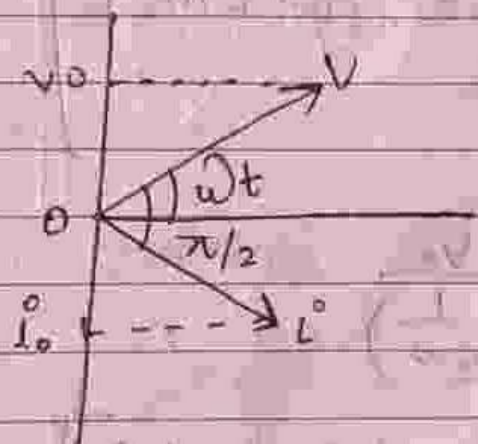 V0
V
ωt
0
π/2
i₀
i